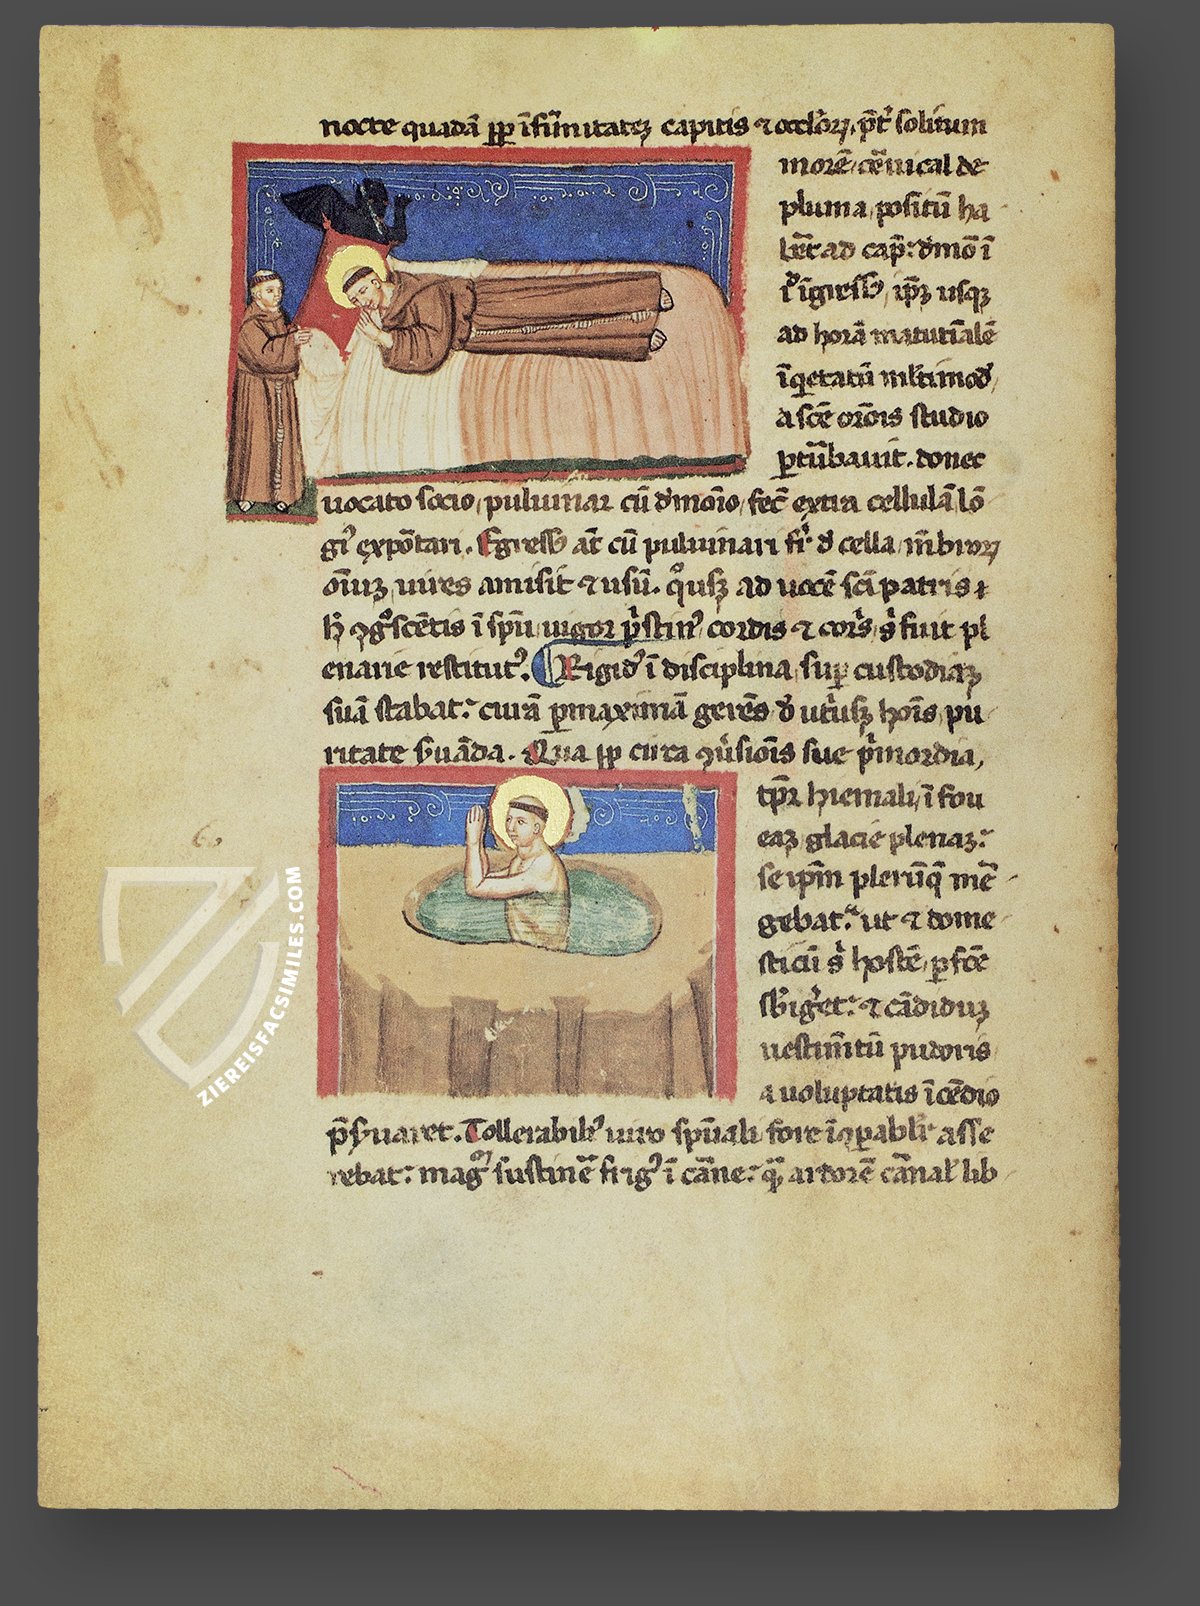 nocte quadā ꝓꝑ īfirmitatēꝫ capitis ⁊ oculoꝝ, p̄t̓ solitum
morē, cēuical de
pluma, positū ha
bēt ad cap̄: dēmō ī
īgressꝰ, ip̄ꝫ usqꝫ
ad horā matutīalē
īqietatū ml̓timod̓,
a scē orōīs studio
ꝑtūbauit. donec
uocato socio, puluinar cū dēmoīo, fec̄ extra cellulā lō
gi̓ exportari. Egressꝰ aūt cū puluinari fr̄ d̓ cella, mēbroꝝ
oīuꝫ, uires amisit ⁊ usū. qͦusqꝫ ad uocē scī patris
h̓ ɔgͦscētis ī spū, uigor pͥstinꝰ cordis ⁊ corꝑis s̓ fuit pl
enarie restitutꝰ. Rigidꝰ ī disciplina, suꝑ custodiaꝫ
suā stabat: curā ꝑmaximā gerēs d̓ utͥusqꝫ hoīs pu
ritate s̓uāda. Qua ꝓꝑ circa ɔu̓sionīs sue pͥmordia,
tp̄r hiemali, ī fou
eaꝫ glacie plenaꝫ:
se ip̄m plerūqꝫ mē
gebat: ut ⁊ dome
sticū s̓ hostē, ꝑfcē
sb̓iget: ⁊ cādiduꝫ
uestimt̄ū pudoris
a uoluptatis īcēdio
p̄s̓uaret. Tollerabiliꝰ uiro spūali, fore īɔꝑabil̓r asse
rebat: magͫ sustinē frigꝰ ī carne: qͣꝫ ardorē carnal̓ lib
6,
ZIEREISFACSIMILES.COM